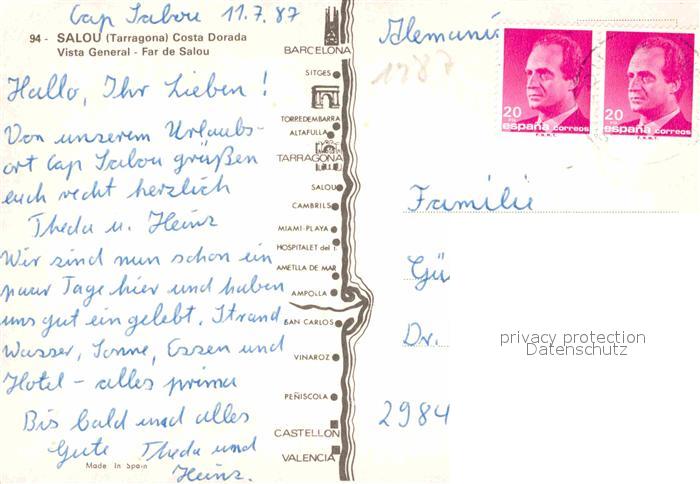 Cap Salou 11.7.87
94 - SALOU (Tarragona) Costa Dorada
Vista General - Far de Salou
Hallo, Ihr Lieben !
Von unserem Urlaubs-
ort Cap Salou grüßen
euch recht herzlich
Theda u. Heinz
Wir sind nun schon ein
paar Tage hier und haben
uns gut eingelebt. Strand
Wasser, Sonne, Essen und
Hotel - alles prima
Bis bald und alles
Gute Theda und
Heinz.
Made In Spain
BARCELONA
SITGES
TORREDEMBARRA
ALTAFULLA
TARRAGONA
SALOU
CAMBRILS
MIAMI-PLAYA
HOSPITALET del I.
AMETLLA DE MAR
AMPOLLA
SAN CARLOS
VINAROZ
PEÑISCOLA
CASTELLON
VALENCIA
Alemania
1987
20 PTA
españa correos
F.N.M.T.
20 PTA
españa correos
F.N.M.T.
Familie
Gü
Dr.
2984
privacy protection
Datenschutz